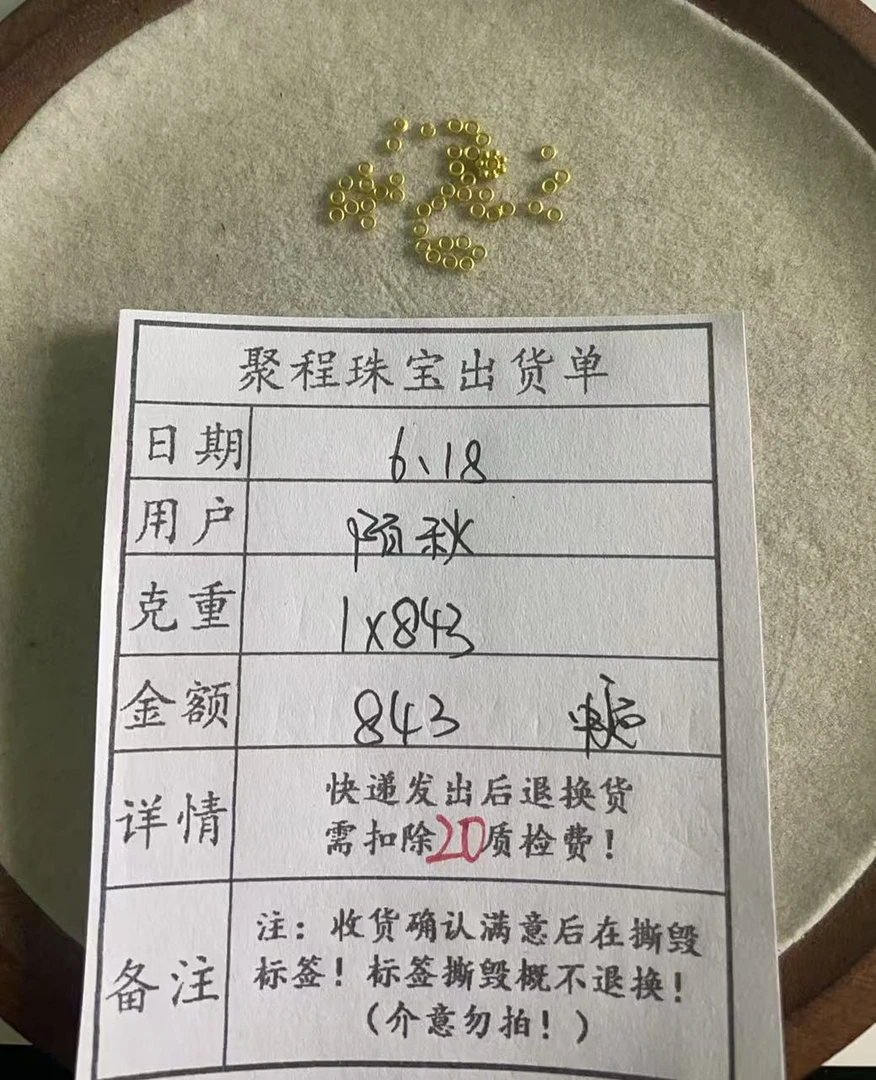 聚程珠宝出货单
日期 6、18
用户 顾秋
克重 1x843
金额 843
详情 快递发出后退换货
需扣除20质检费！
备注 注：收货确认满意后在撕毁
标签！标签撕毁概不退换！
（介意勿拍！）